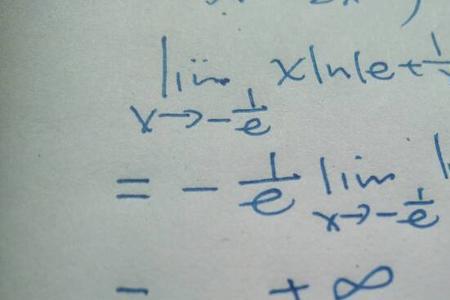 lim x→-1/e x ln(e+1/
= -1/e lim x→-1/e
= +∞